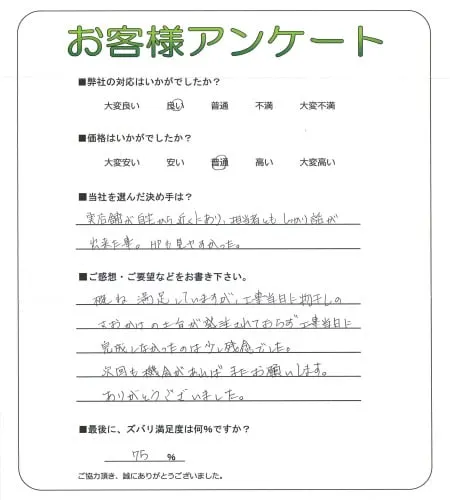 お客様アンケート
■弊社の対応はいかがでしたか？
大変良い 良い 普通 不満 大変不満
■価格はいかがでしたか？
大変安い 安い 普通 高い 大変高い
■当社を選んだ決め手は？
実店舗が自宅から近くにあり、担当者ともしっかり話が
出来た事。HPも見やすかった。
■ご感想・ご要望などをお書き下さい。
概ね満足していますが、工事当日に物干しの
さおかけの土台が発注されておらず工事当日に
完成しなかったのは少し残念でした。
次回も機会があればまたお願いします。
ありがとうございました。
■最後に、ズバリ満足度は何％ですか？
75 %
ご協力頂き、誠にありがとうございました。